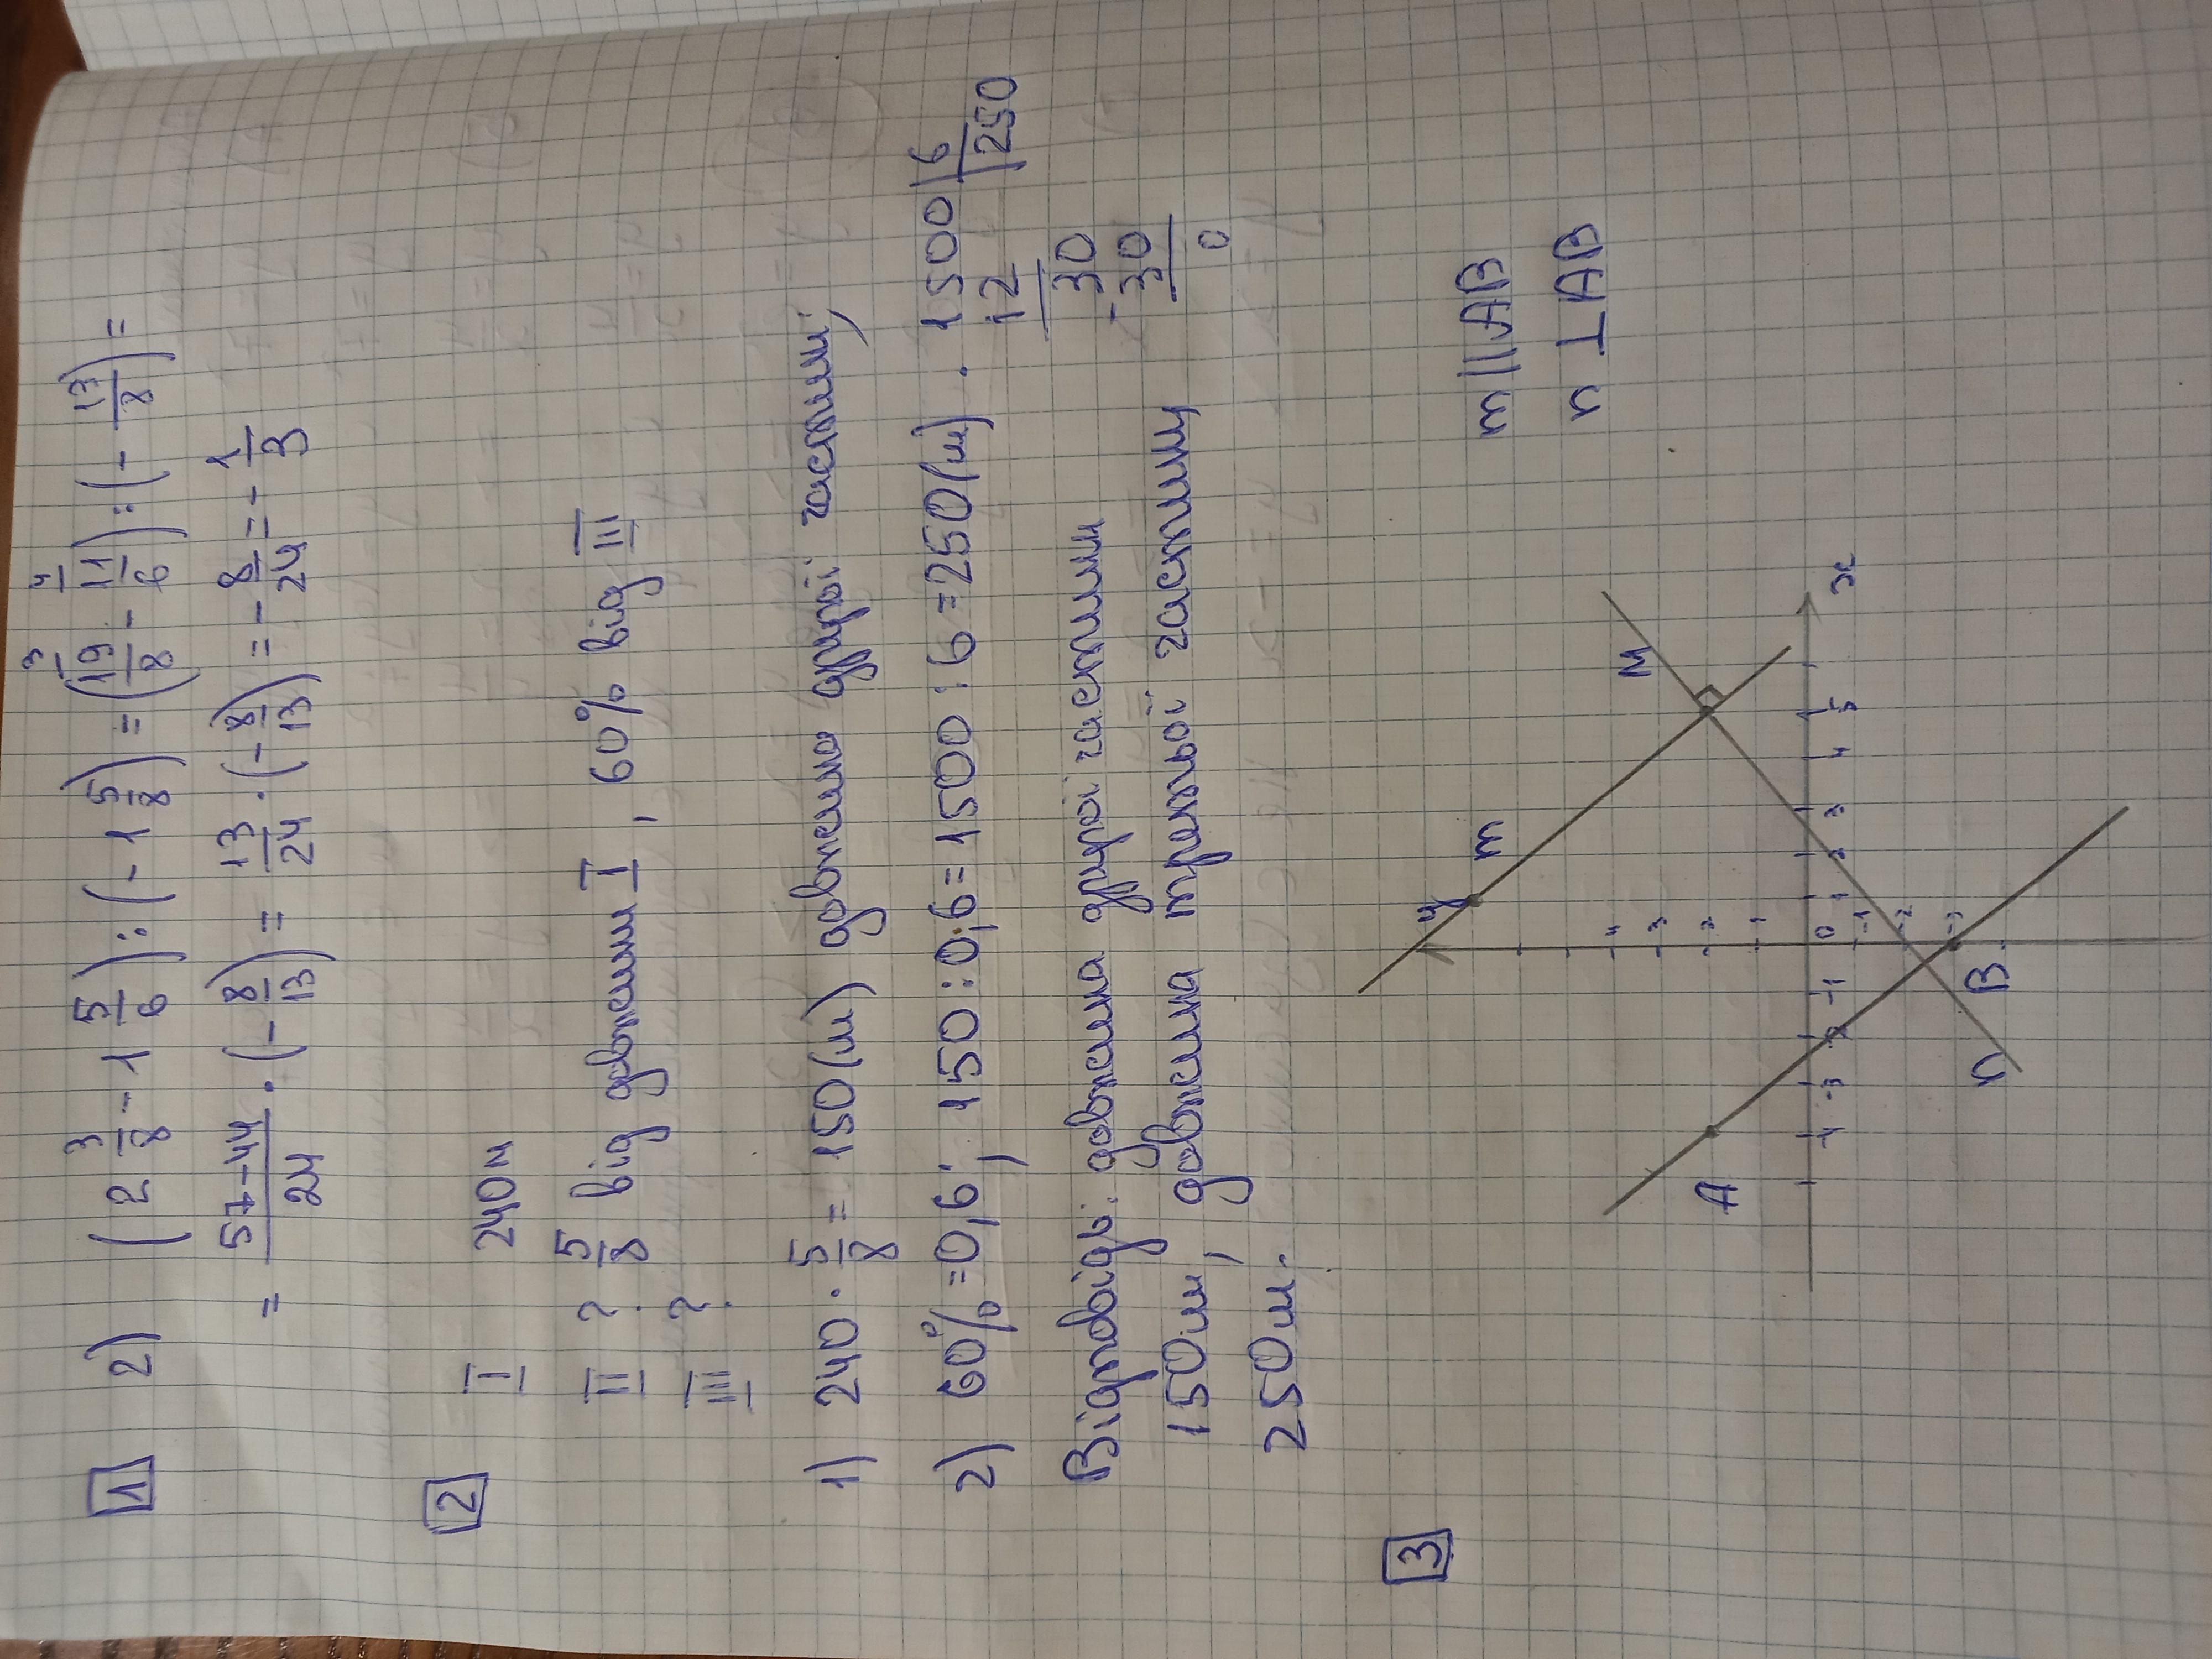 1 2) (2 3/8 - 1 5/6) : (- 1 5/8) = (19/8 - 11/6) : (- 13/8) =
= 57-44/24 · (- 8/13) = 13/24 · (- 8/13) = - 8/24 = - 1/3
2 I 240м
II ? 5/8 від довжини I, 60% від III
III ?
1) 240 · 5/8 = 150(м) довжина другої частини;
2) 60% = 0,6; 150 : 0,6 = 1500 : 6 = 250(м).
1500 | 6
12 | 250
30
-30
0
Відповідь: довжина другої частини
150м, довжина третьої частини
250м.
3
m || AB
n ⊥ AB
y
m
M
A
B
n
x
4
3
2
1
0
-1
-2
-3
-4
-3
-2
-1
1
2
3
4
5